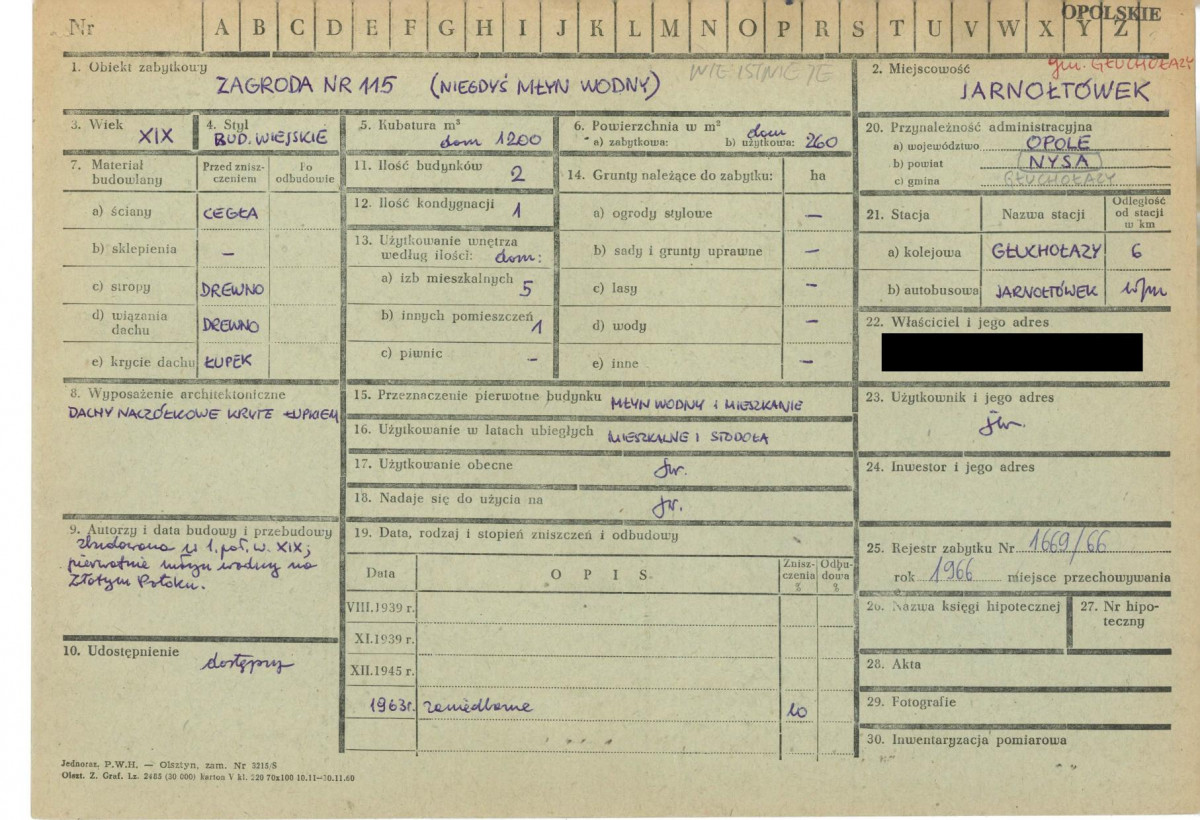 Nr A B C D E F G H I J K L M N O P R S T U V W X Y Z OPOLSKIE
1. Obiekt zabytkowy
NIE ISTNIEJE
ZAGRODA NR 115 (NIEGDYŚ MŁYN WODNY)
2. Miejscowość gm. GŁUCHOŁAZY
JARNOŁTÓWEK
3. Wiek XIX
4. Styl
BUD. WIEJSKIE
5. Kubatura m³
dom 1200
6. Powierzchnia w m²
a) zabytkowa: b) użytkowa: dom 260
7. Materiał budowlany
Przed zniszczeniem
Po odbudowie
a) ściany CEGŁA
b) sklepienia –
c) stropy DREWNO
d) wiązania dachu DREWNO
e) krycie dachu ŁUPEK
11. Ilość budynków 2
12. Ilość kondygnacji 1
13. Użytkowanie wnętrza
według ilości: dom:
a) izb mieszkalnych 5
b) innych pomieszczeń 1
c) piwnic –
14. Grunty należące do zabytku: ha
a) ogrody stylowe –
b) sady i grunty uprawne –
c) lasy –
d) wody –
e) inne –
20. Przynależność administracyjna
a) województwo OPOLE
b) powiat NYSA
c) gmina GŁUCHOŁAZY
21. Stacja
Nazwa stacji
Odległość
od stacji
w km
a) kolejowa GŁUCHOŁAZY 6
b) autobusowa JARNOŁTÓWEK w/m
22. Właściciel i jego adres
8. Wyposażenie architektoniczne
DACHY NACZÓŁKOWE KRYTE ŁUPKIEM
15. Przeznaczenie pierwotne budynku MŁYN WODNY i MIESZKANIE
16. Użytkowanie w latach ubiegłych MIESZKALNE I STODOŁA
17. Użytkowanie obecne jw.
18. Nadaje się do użycia na jw.
23. Użytkownik i jego adres
jw.
24. Inwestor i jego adres
9. Autorzy i data budowy i przebudowy
zbudowana w 1. poł. w. XIX;
pierwotnie młyn wodny na
Złotym Potoku.
10. Udostępnienie
dostępny
19. Data, rodzaj i stopień zniszczeń i odbudowy
Data
OPIS
Zniszczenia %
Odbudowa %
VIII.1939 r.
XI.1939 r.
XII.1945 r.
1963r. zaniedbane 10
25. Rejestr zabytku Nr 1669/66
rok 1966 miejsce przechowywania
26. Nazwa księgi hipotecznej
27. Nr hipoteczny
28. Akta
29. Fotografie
30. Inwentaryzacja pomiarowa
Jednoraz. P.W.H. — Olsztyn, zam. Nr 3215/S
Olszt. Z. Graf. Lz. 2485 (30 000) karton V kl. 220 70x100 10.11—30.11.60